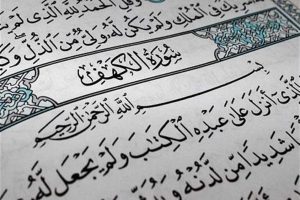 الْحَمْدُ لِلَّهِ الَّذِي
فِي الْمُلْكِ وَلَمْ يَكُن لَّهُ وَلِيٌّ مِّنَ الذُّلِّ
سُورَةُ الْكَهْفِ
بِسْمِ اللَّهِ الرَّحْمَٰنِ الرَّحِيمِ
الَّذِي أَنزَلَ عَلَىٰ عَبْدِهِ الْكِتَابَ وَلَمْ يَجْعَل لَّهُ
شَدِيدًا مِّن لَّدُنْهُ